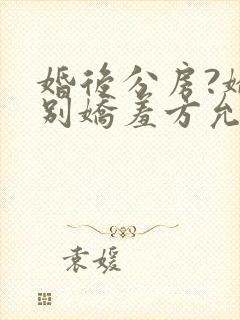 婚後分房?
別嬌羞方允
袁媛